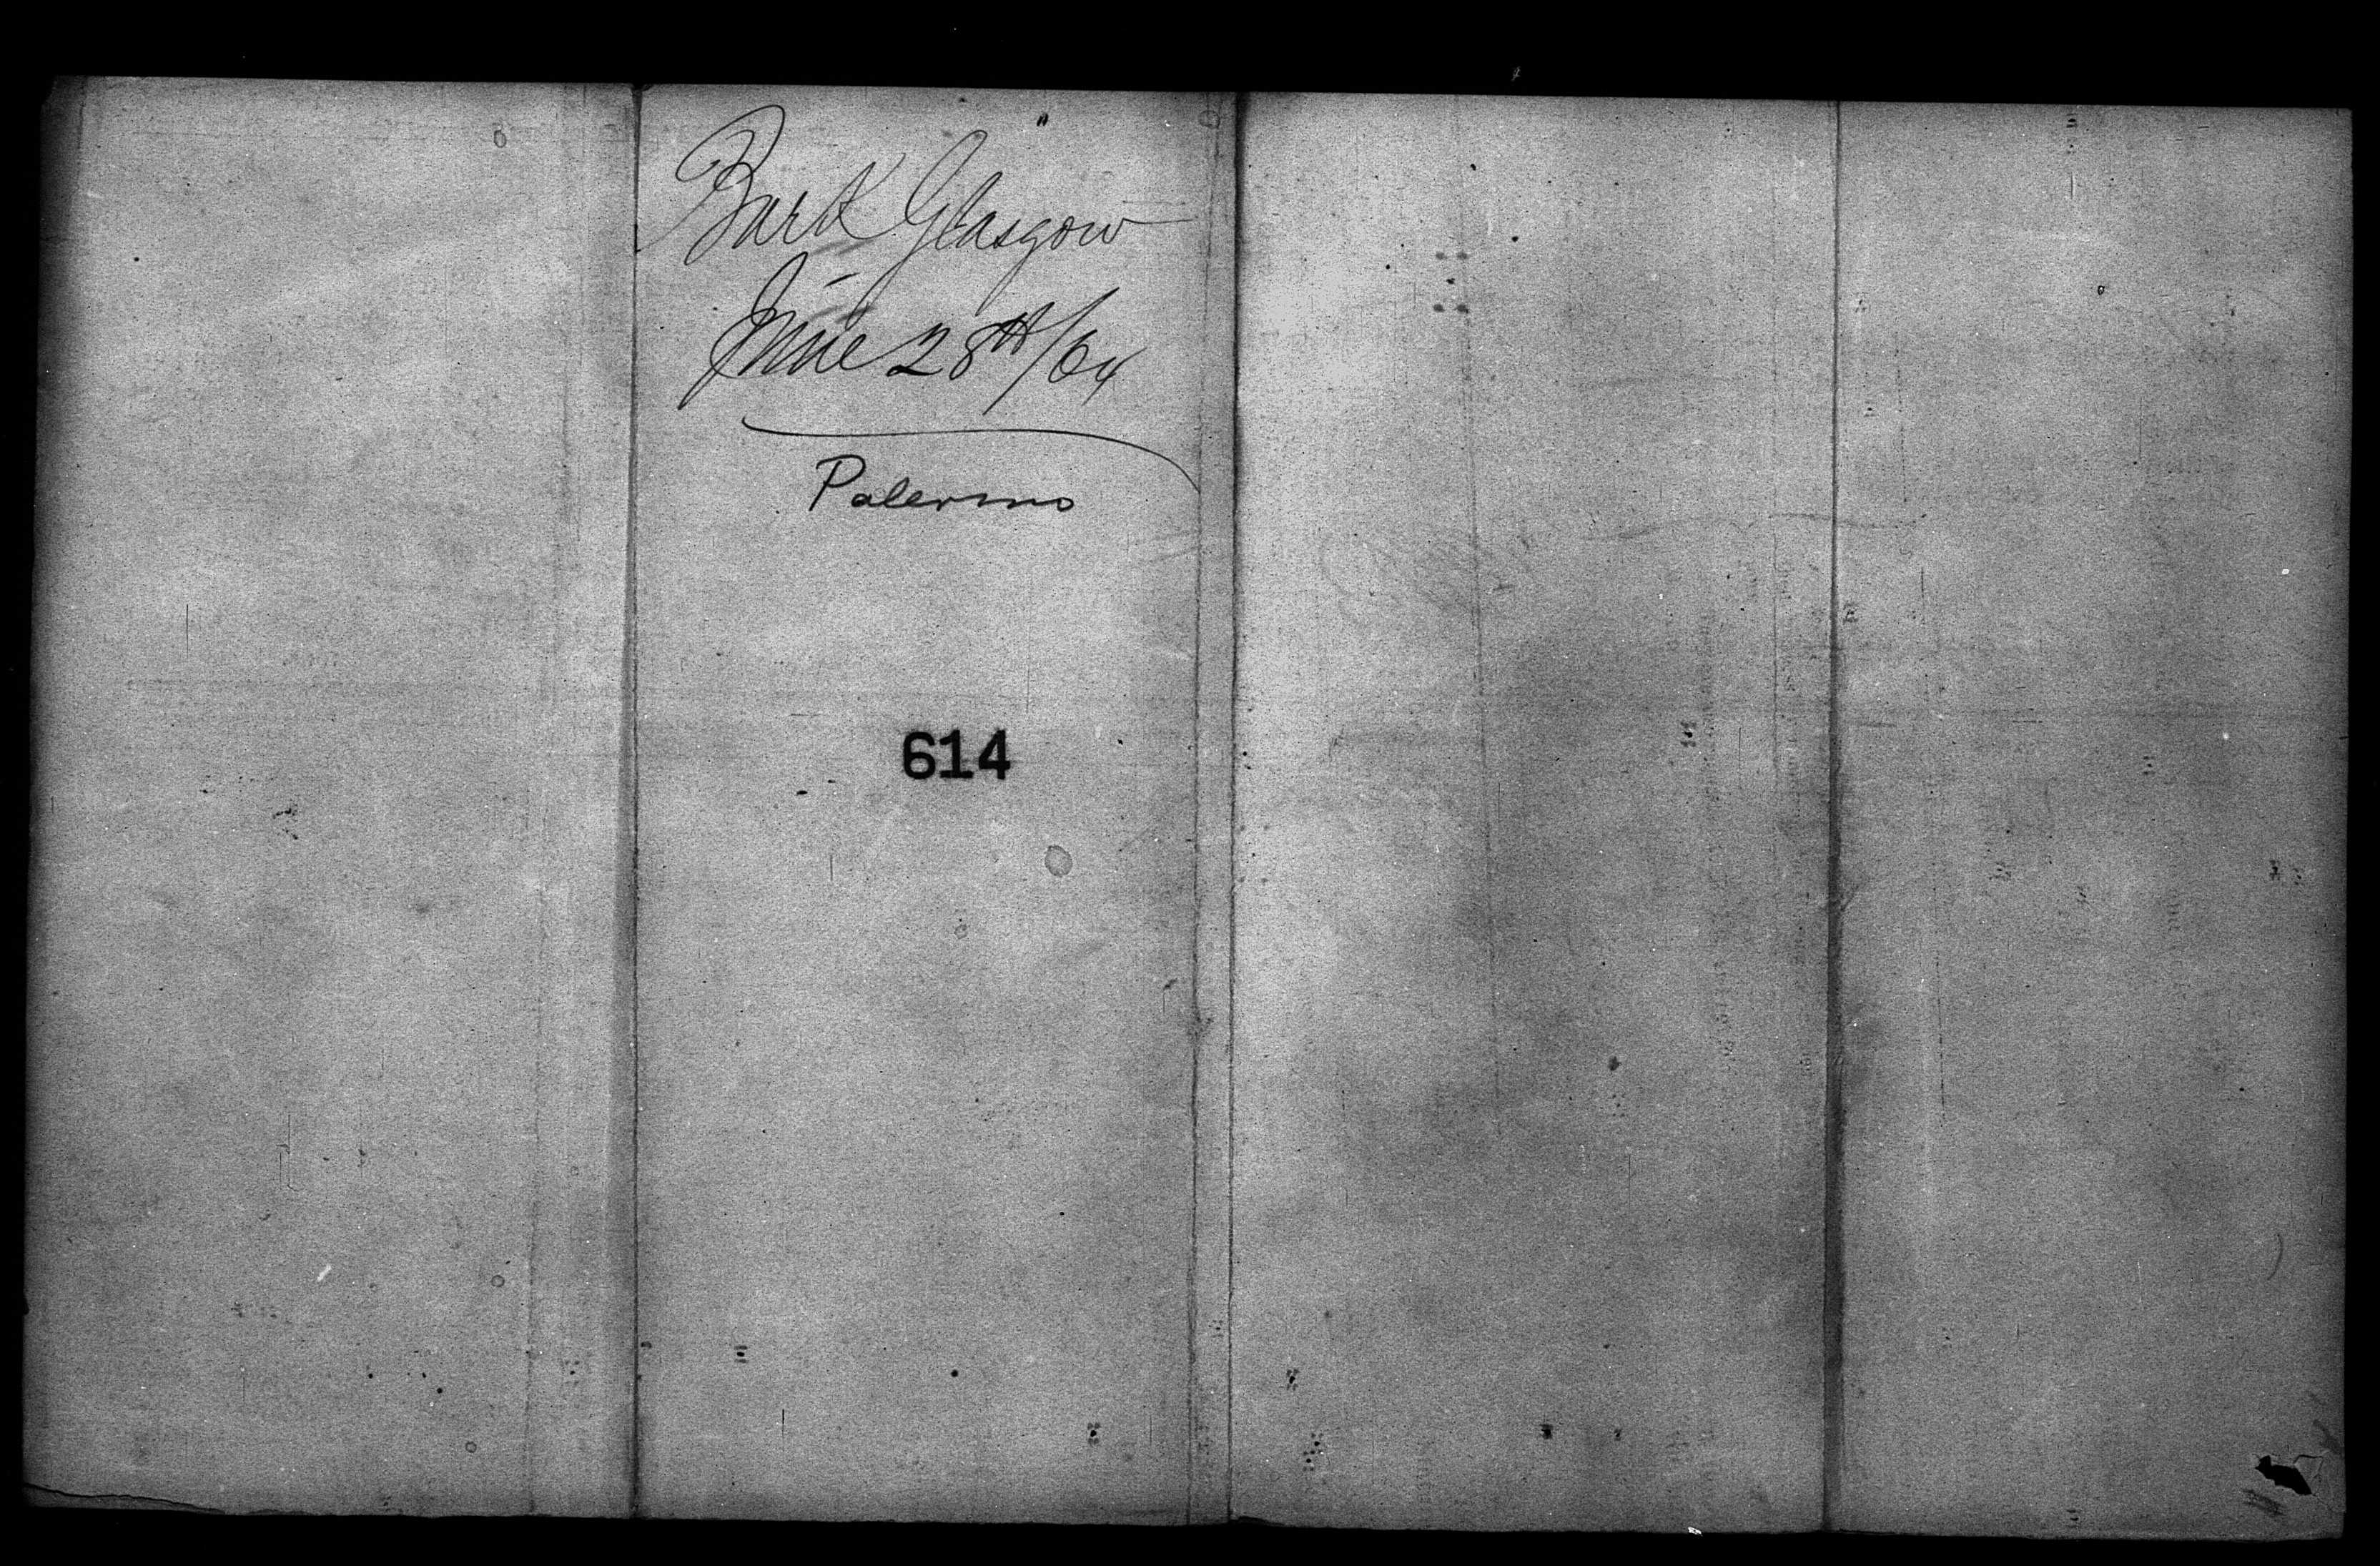 Bark Glasgow
June 28th/64
Palermo
614